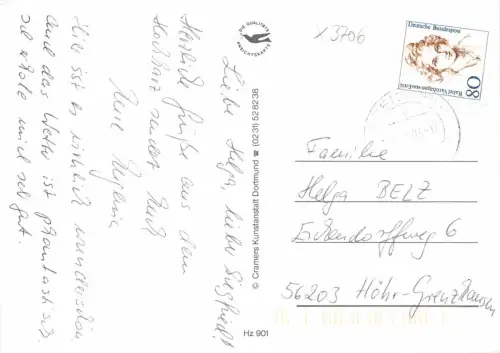 Liebe Helga, lieber Siegfried!
Herzliche Grüße aus dem
Hochharz sendet Euch
Eure
Hier ist es wirklich wunderschön
und das Wetter ist phantastisch.
Ich erhole mich sehr gut.
DIE QUALITÄTS
ANSICHTSKARTE
© Cramers Kunstanstalt Dortmund ☎ (0231) 528238
Hz 901
x3706
Deutsche Bundespost
Rahel Varnhagen von Ense
80
Familie
Helga BELZ
Eichendorffweg 6
56203 Höhr-Grenzhausen